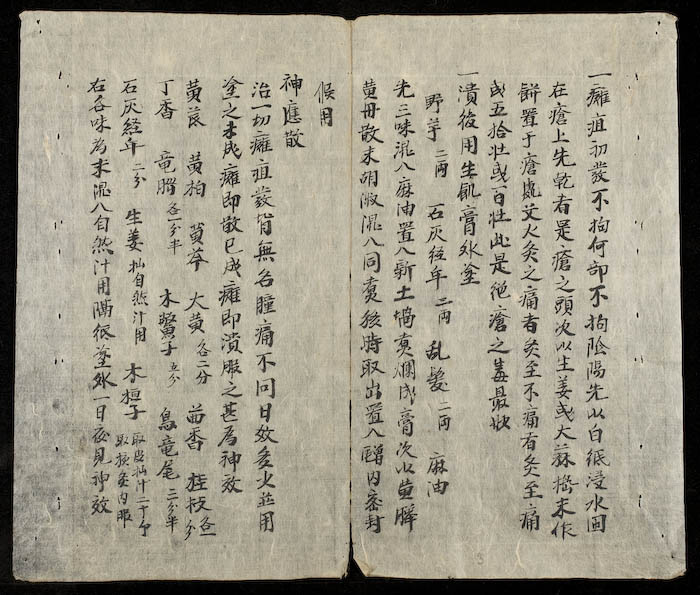 一癰疽初發不拘何部不拘陰陽先以白紙浸水圖
在瘡上先乾者是瘡之頭次以生姜或大蒜搗末作
餅置于瘡處艾火灸之痛者灸至不痛者灸至痛
或五拾壮或百壮此是絶瘡之毒最妙
一潰後用生肌膏外塗
野芋 二両 石灰经年 二両 乱髮 二両 麻油
先三味混入麻油置入新土堝煑爛成膏次以黄蠟
黄丹散末胡椒混入同煑移時取出置入罇内密封
候用
神應散
治一切癰疽發背無名腫痛不问日效多少並用
塗之未成癰即散已成癰即潰服之甚為神效
黄茋 黄柏 黄芩 大黄 各二分 茴香 桂枝 各一分
丁香 竜腦 各一分半 木鱉子 五分 烏竜尾 二分半
石灰経年 二分 生姜 拙自然汁用 木桓子 取皮拙汁二十分
右各味為末混入自然汁用隔紙塗外一日夜見神效